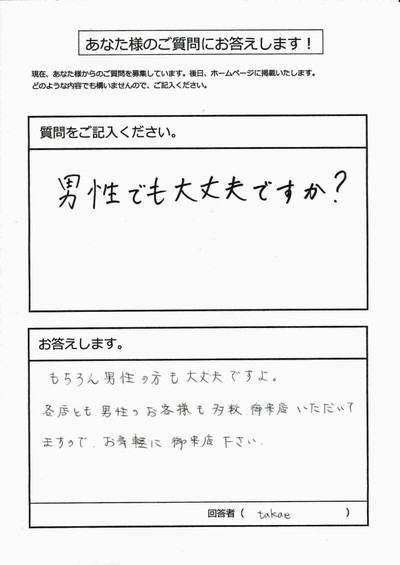 あなた様のご質問にお答えします！
現在、あなた様からのご質問を募集しています。後日、ホームページに掲載いたします。
どのような内容でも構いませんので、ご記入ください。
質問をご記入ください。
男性でも大丈夫ですか？
お答えします。
もちろん男性の方も大丈夫ですよ。
各店とも男性のお客様も多数、御来店いただいて
ますので、お気軽に御来店下さい。
回答者（ takae ）